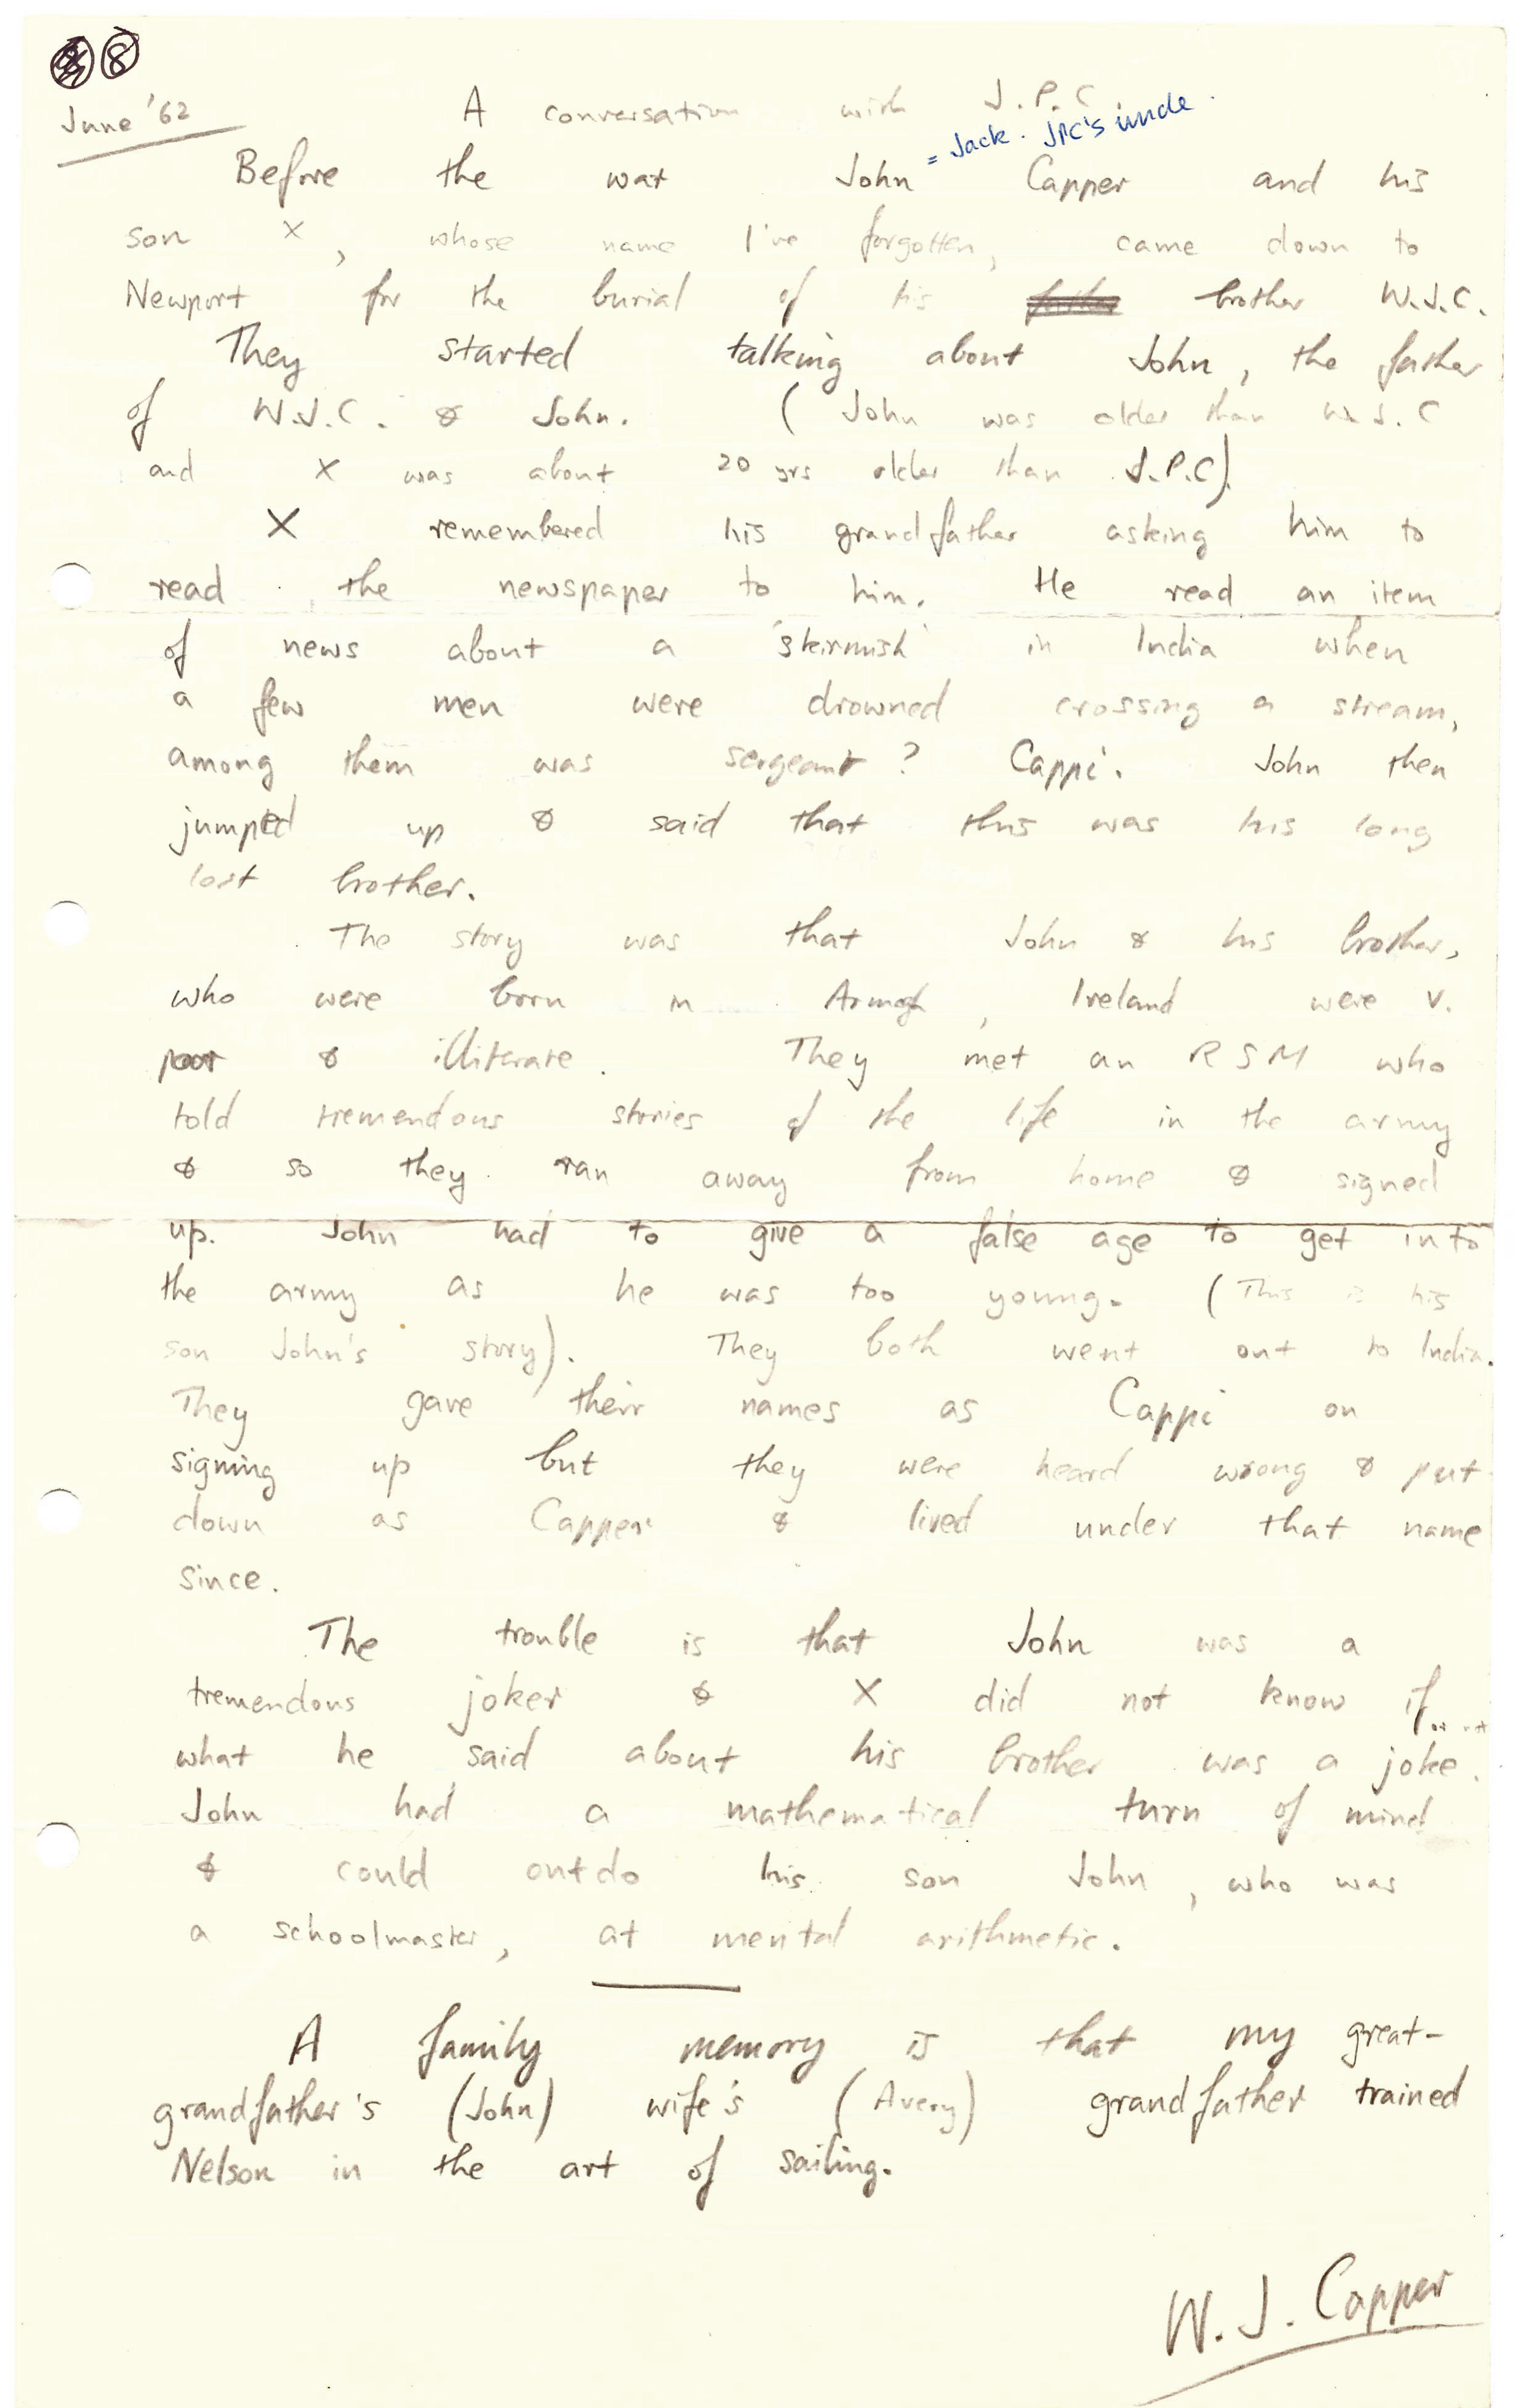 8
June '62
A conversation with J.P.C.
= Jack. JPC's uncle.
Before the war John Capper and his
son X, whose name I've forgotten, came down to
Newport for the burial of his father brother W.J.C.
They started talking about John, the father
of W.J.C. & John. (John was older than W.J.C
and X was about 20 yrs older than J.P.C).
X remembered his grandfather asking him to
read the newspaper to him. He read an item
of news about a 'skirmish' in India when
a few men were drowned crossing a stream,
among them was sergeant? Cappi. John then
jumped up & said that this was his long
lost brother.
The story was that John & his brother,
who were born in Armagh, Ireland were v.
poor & illiterate. They met an RSM who
told tremendous stories of the life in the army
& so they ran away from home & signed
up. John had to give a false age to get into
the army as he was too young. (This is his
son John's story). They both went out to India.
They gave their names as Cappi on
signing up but they were heard wrong & put
down as Capper & lived under that name
since.
The trouble is that John was a
tremendous joker & X did not know if
what he said about his brother was a joke.
John had a mathematical turn of mind
& could outdo his son John, who was
a schoolmaster, at mental arithmetic.
A family memory is that my great-
grandfather's (John) wife's (Avery) grandfather trained
Nelson in the art of sailing.
W. J. Capper